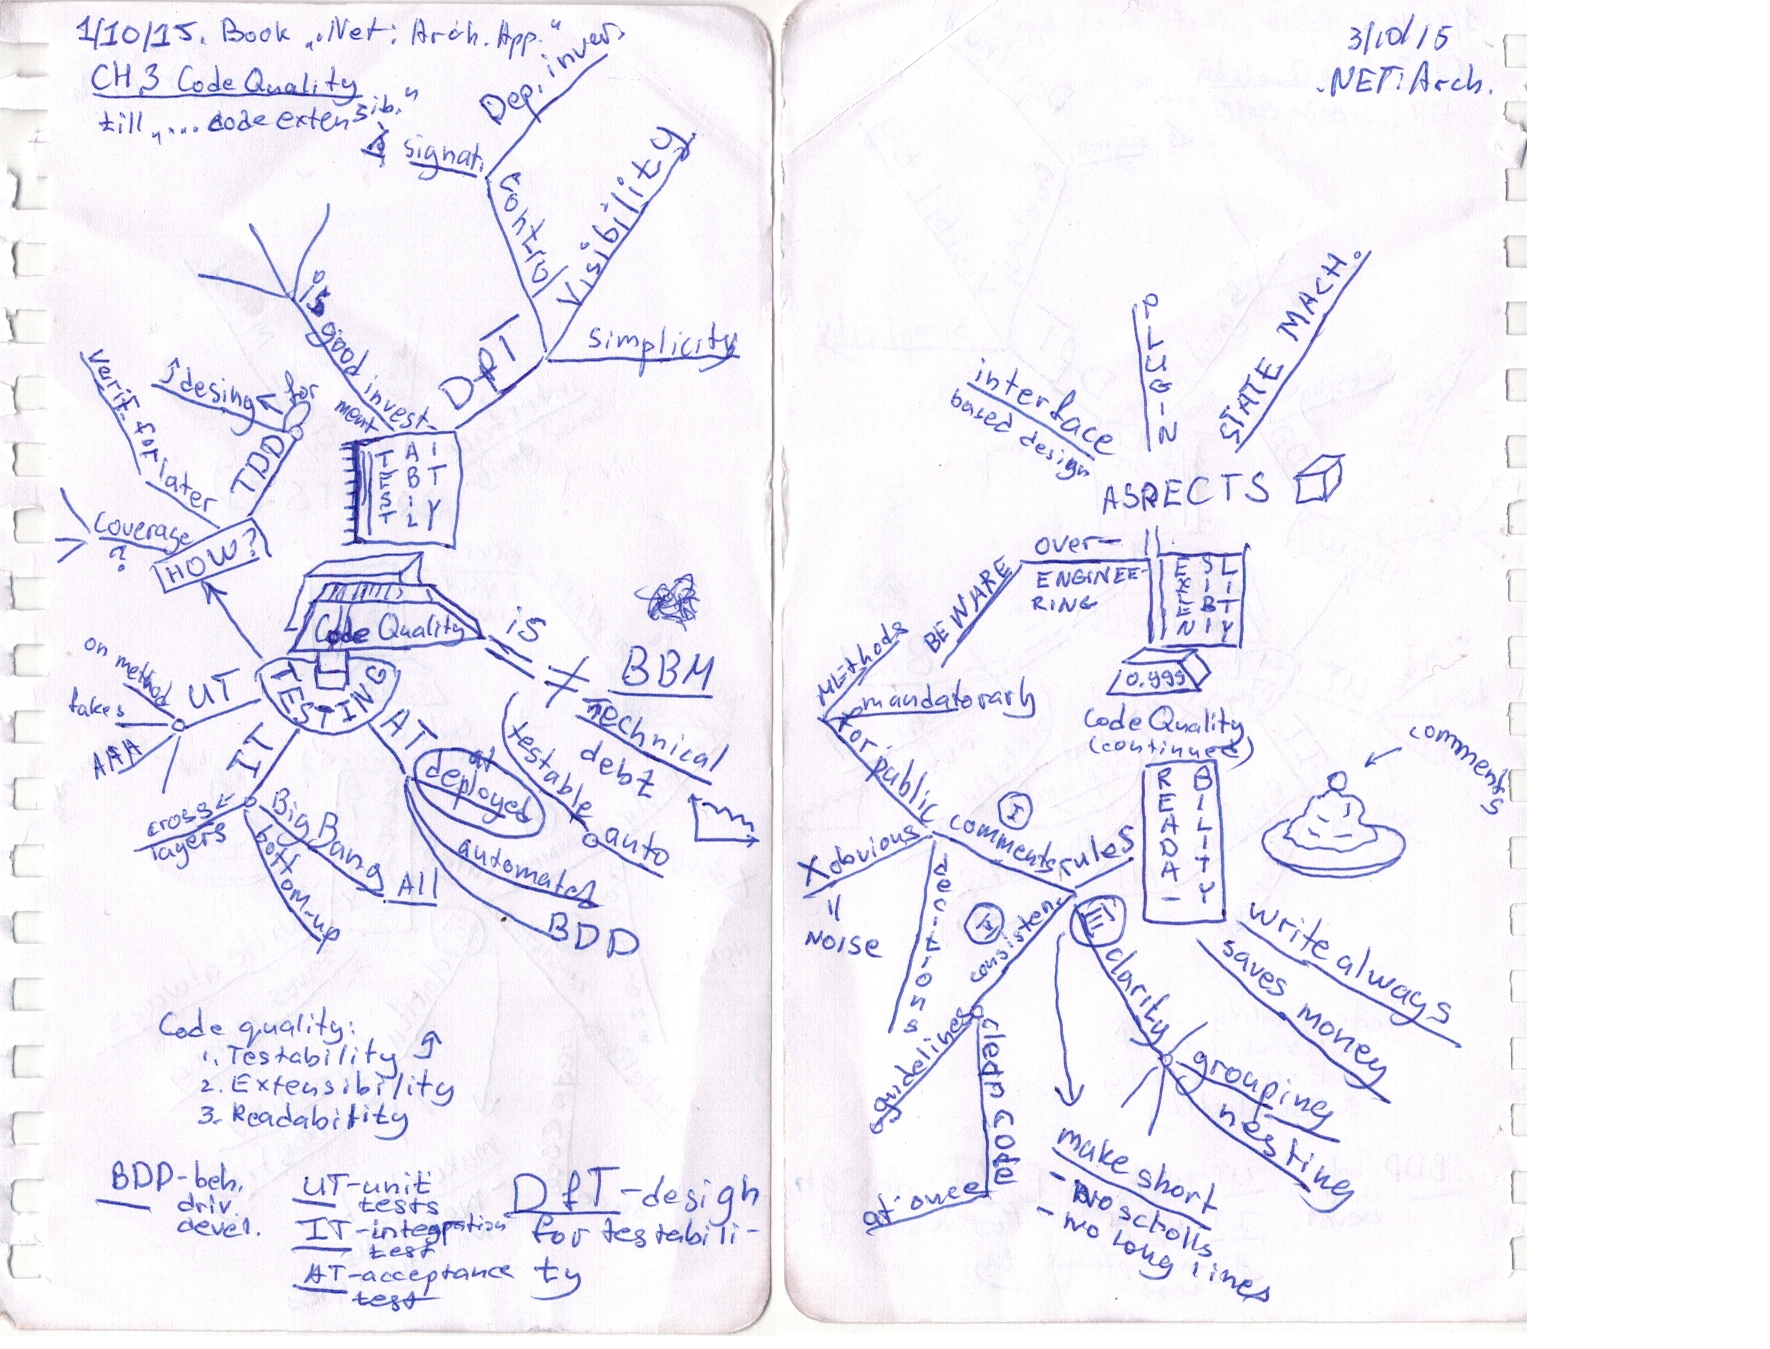 1/10/15. Book „.Net: Arch. App."
CH.3 Code Quality
till „... code extensib."
Dep. inver.
signat.
control
Visibility
simplicity
DfT
is good invest-
ment
verif. for later
desing
for
TDD
coverage
?
HOW?
TESTABILITY
Code Quality
is
≠
BBM
Technical
debt
testable
auto
TESTING
UT
on method
fakes
AAA
IT
cross
layers
Big Bang
All
bottom-up
AT
at
deployed
automated
BDD
Code quality:
1. Testability
2. Extensibility
3. Readability
BDD-beh.
driv.
devel.
UT-unit
tests
IT-integration
test
AT-acceptance
test
DfT-design
for testabili-
ty
3/10/15
.NET: Arch.
interface
based design
PLUGIN
STATE MACH.
ASPECTS
OVER-
ENGINEE-
RING
BEWARE
EXTENSIBILITY
0.999
Code Quality
(continued)
Methods
mandatorary
for public
comments
I
rules
X obvious
=
NOISE
decitions
II
consisten.
guidelines
clean code
at once
III
clarity
grouping
nesting
make short
- no scrolls
- no long lines
READA-
BILITY
comments
write always
saves money